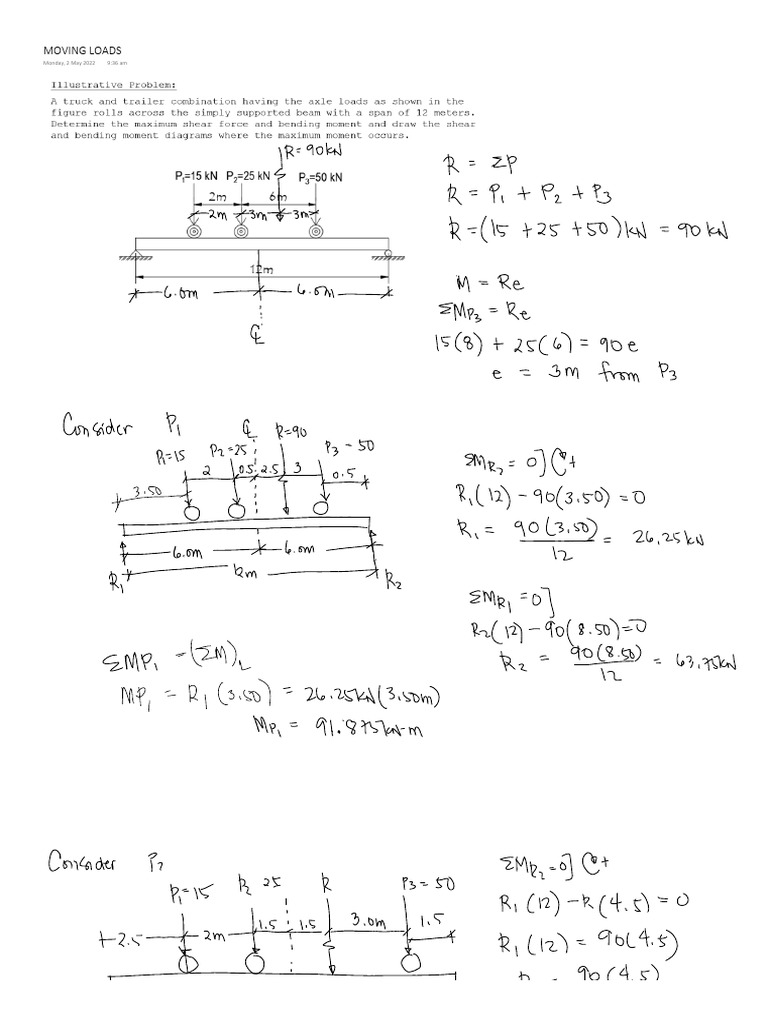 MOVING LOADS
Monday, 2 May 2022 9:36 am
Illustrative Problem:
A truck and trailer combination having the axle loads as shown in the
figure rolls across the simply supported beam with a span of 12 meters.
Determine the maximum shear force and bending moment and draw the shear
and bending moment diagrams where the maximum moment occurs.
R= 90kN
P₁=15 kN P₂=25 kN P₃=50 kN
2m 6m
2m 3m 3m
12m
6.0m 6.0m
℄
R = ΣP
R = P₁ + P₂ + P₃
R = (15 + 25 + 50) kN = 90 kN
M = Re
ΣMP₃ = Re
15(8) + 25(6) = 90 e
e = 3m from P₃
Consider P₁
℄ R=90
P₁=15 P₂=25 P₃ = 50
2 0.5 2.5 3 0.5
3.50
6.0m 6.0m
R₁ 12m R₂
ΣMR₂ = 0] +
R₁(12) - 90(3.50) = 0
R₁ = 90(3.50) / 12 = 26.25kN
ΣMR₁ = 0]
R₂(12) - 90(8.50) = 0
R₂ = 90(8.50) / 12 = 63.75kN
ΣMP₁ = (ΣM)L
MP₁ = R₁(3.50) = 26.25kN(3.50m)
MP₁ = 91.875kN-m
Consider P₂
P₁=15 P₂ 25 R P₃ = 50
2.5 2m 1.5 1.5 3.0m 1.5
ΣMR₂ = 0] +
R₁(12) - R(4.5) = 0
R₁(12) = 90(4.5)
90(4.5)